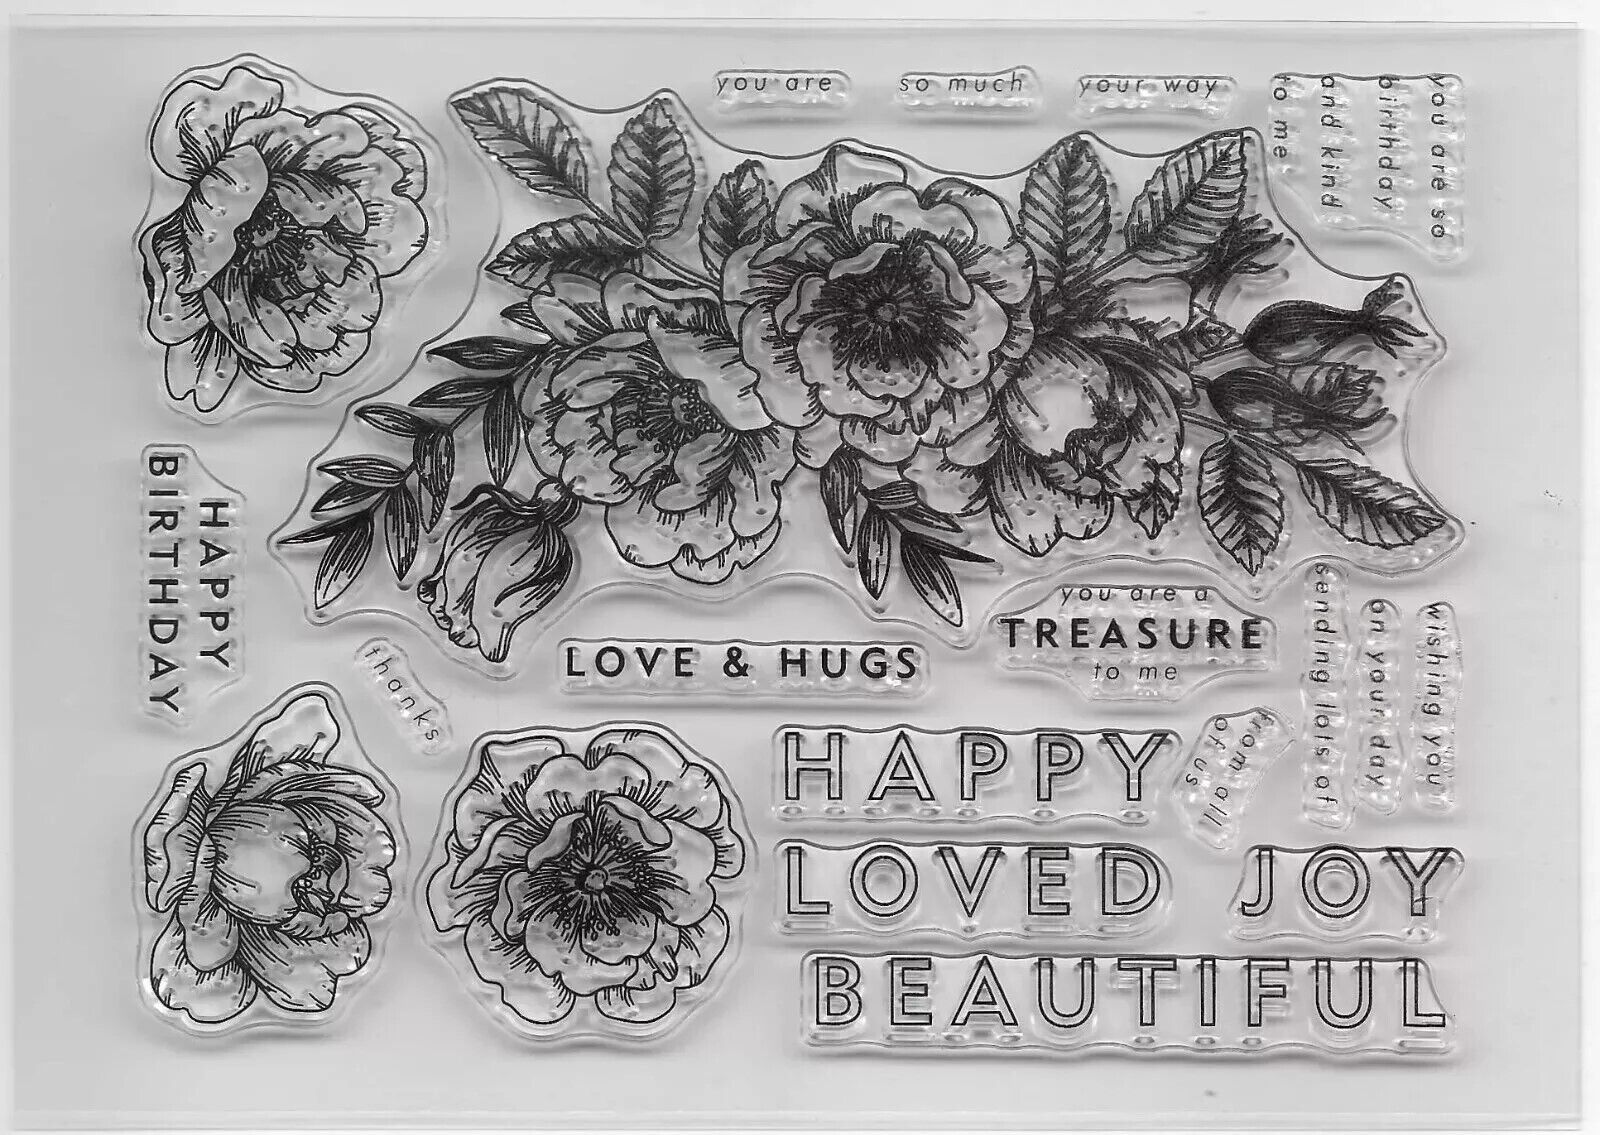 you are
so much
your way
you are so
birthday
and kind
to me
HAPPY
BIRTHDAY
thanks
LOVE & HUGS
you are a
TREASURE
to me
wishing you
on your day
sending lots of
from all
of us
HAPPY
LOVED
JOY
BEAUTIFUL